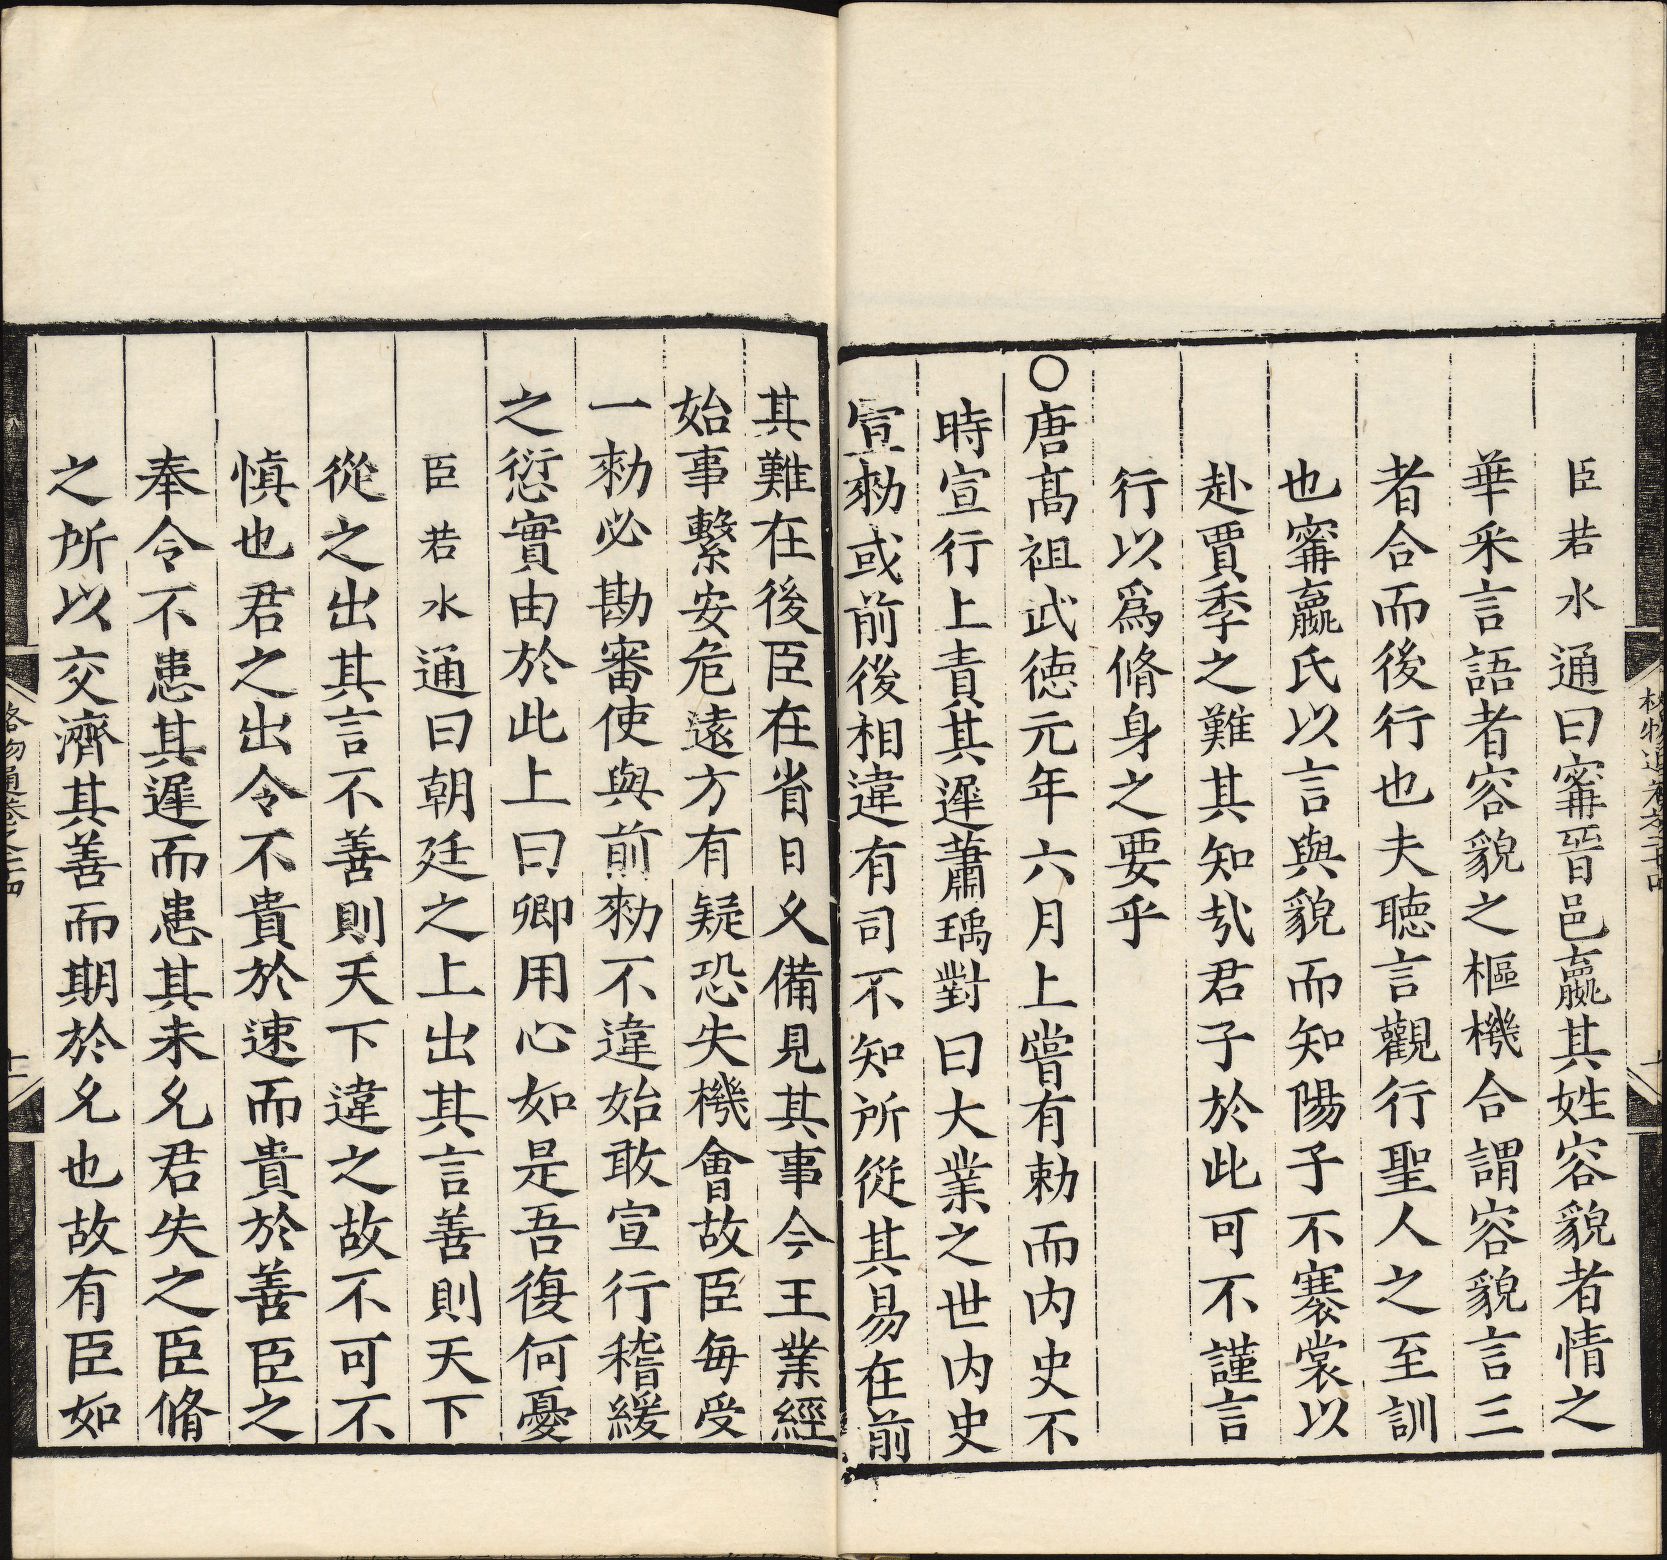 臣若水通曰甯晉邑嬴其姓容貌者情之
華采言語者容貌之樞機合謂容貌言三
者合而後行也夫聽言觀行聖人之至訓
也甯嬴氏以言與貌而知陽子不褰裳以
赴賈季之難其知㢤君子於此可不謹言
行以爲脩身之要乎
○唐髙祖武德元年六月上嘗有勅而内史不
時宣行上責其遲蕭瑀對曰大業之世内史
宣勑或前後相違有司不知所從其易在前
其難在後臣在省日久備見其事今王業經
始事繫安危遠方有疑恐失機會故臣每受
一勑必勘審使與前勑不違始敢宣行稽緩
之愆實由於此上曰卿用心如是吾復何憂
臣若水通曰朝廷之上出其言善則天下
從之出其言不善則天下違之故不可不
慎也君之出令不貴於速而貴於善臣之
奉令不患其遲而患其未允君失之臣脩
之所以交濟其善而期於允也故有臣如
格物通卷之二十四
十二